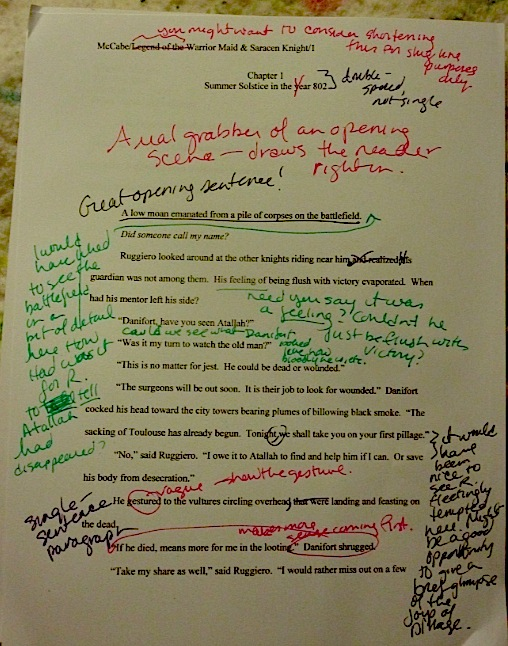 you might want to consider shortening
this for slug line
purposes
only
McCabe/Legend of the Warrior Maid & Saracen Knight/1
Chapter 1
Summer Solstice in the year 802
double-
spaced
not single
A real grabber of an opening
scene — draws the reader
right in.
Great opening sentence!
A low moan emanated from a pile of corpses on the battlefield.
Did someone call my name?
Ruggiero looked around at the other knights riding near him and realized His
guardian was not among them. His feeling of being flush with victory evaporated. When
had his mentor left his side?
I would
have liked
to see the
battlefield
in a
bit of detail
here. How
Had was it
for R.
to tell
Atallah
had
disappeared?
need you say it was
a feeling? Couldn't he
just be flush with
victory?
"Danifort, have you seen Atallah?"
Could we see what Danifort
looked
like, how
bloody he is, etc.
"Was it my turn to watch the old man?"
"This is no matter for jest. He could be dead or wounded."
"The surgeons will be out soon. It is their job to look for wounded." Danifort
cocked his head toward the city towers bearing plumes of billowing black smoke. "The
sacking of Toulouse has already begun. Tonight we shall take you on your first pillage."
"No," said Ruggiero. "I owe it to Atallah to find and help him if I can. Or save
his body from desecration."
it would
have
been
nice to
see R.
fleetingly
tempted
here. Might
be a good
opportunity
to give a
brief glimpse
of the
joys of
pillage.
vague — show the gesture.
He gestured to the vultures circling overhead that were landing and feasting on
the dead.
single-
sentence
paragraph
makes more
sense coming first.
"If he died, means more for me in the looting." Danifort shrugged.
"Take my share as well," said Ruggiero. "I would rather miss out on a few